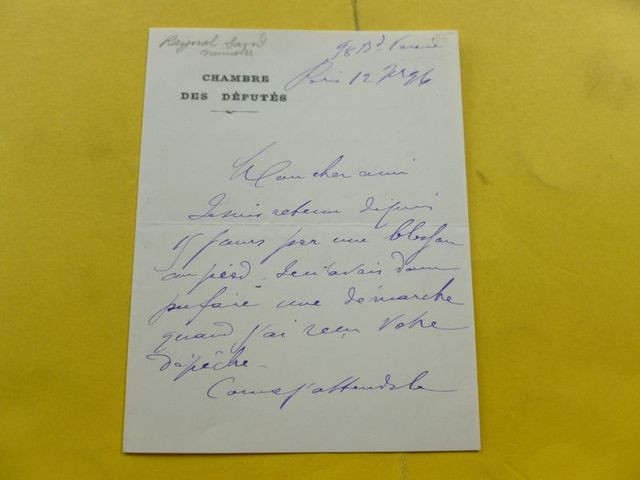 Raynal David
ministre
98 Bd
Paris 12
CHAMBRE
DES DÉPUTÉS
Mon cher ami
Je suis retenu depuis
15 jours par une blessure
au pied. Je n'avais donc
pu faire une démarche
quand j'ai reçu votre
dépêche.
Comme j'attends le